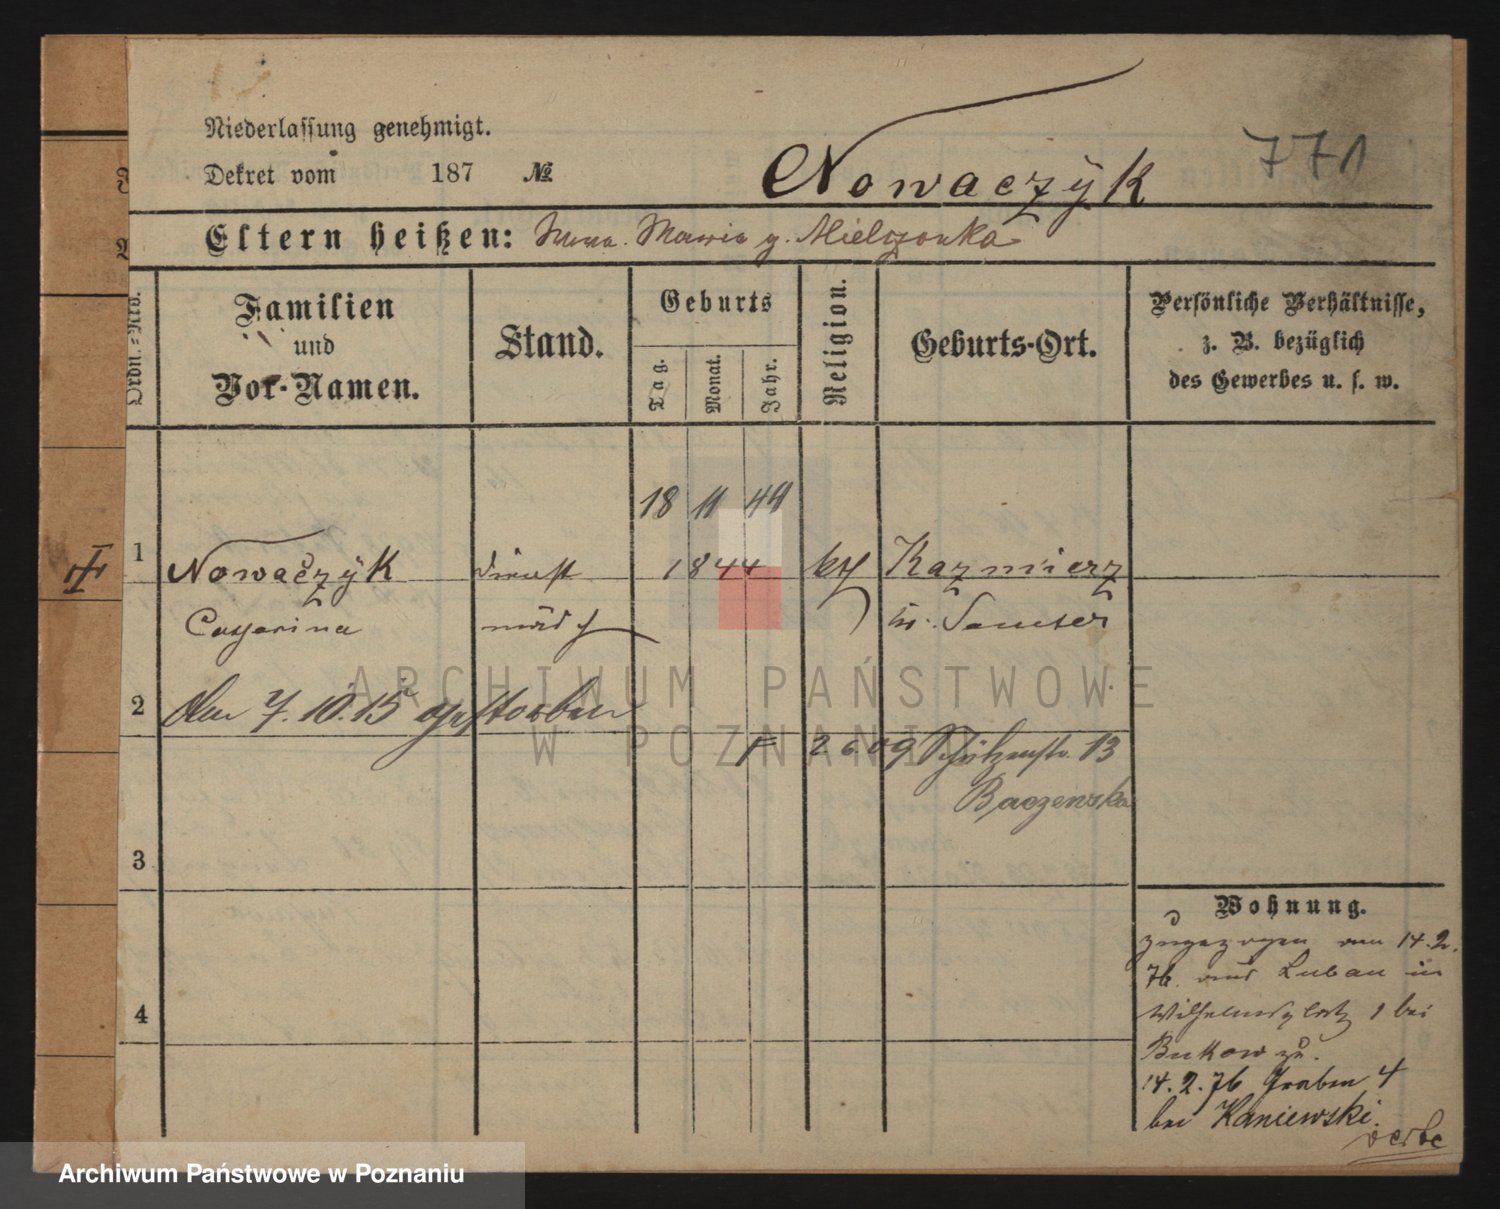 Niederlassung genehmigt.
Dekret vom 187 №
Nowaczÿk
771
Eltern heißen: Maria g. Mielczonka
Ordn.-Nro.
Familien
und
Vor-Namen.
Stand.
Geburts
Tag.
Monat.
Jahr.
Religion.
Geburts-Ort.
Persönliche Verhältnisse,
z. B. bezüglich
des Gewerbes u. s. w.
18 11 44
1 Nowaczÿk Dienst 1844 kth Kazmierz
Catharina mädch Kr. Samter
2 den 7.10.15 gestorben
2 6 09 Schützenstr. 13
Baczenska
3
4
Wohnung.
Zugezogen am 14.2.
76. aus Luban in
Wilhelmsplatz 1 bei
Bukow zu.
14.2.76 Graben 4
bei Kaniewski.
ARCHIWUM PAŃSTWOWE
W POZNANIU
Archiwum Państwowe w Poznaniu